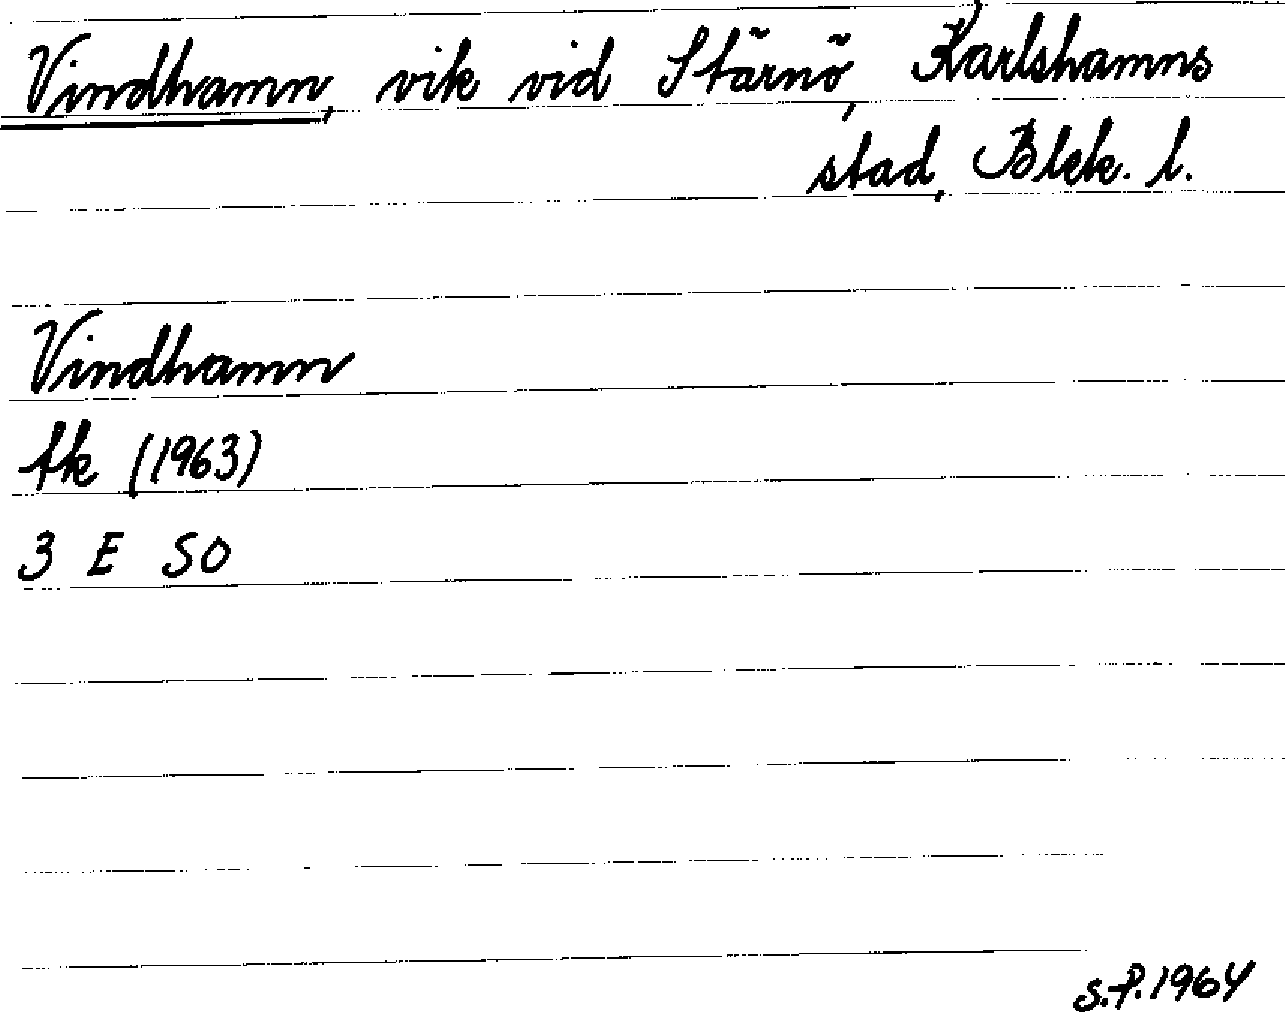 Vindhamn, vik vid Stärnö, Karlshamns
stad, Blek. l.
Vindhamn
tk (1963)
3 E SO
S.P. 1964